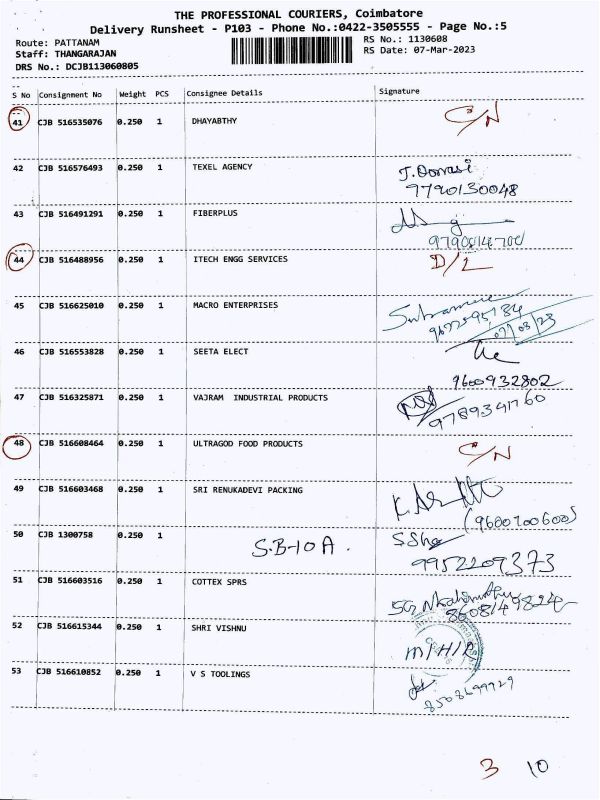 THE PROFESSIONAL COURIERS, Coimbatore
Delivery Runsheet - P103 - Phone No.:0422-3505555 - Page No.:5
Route: PATTANAM RS No.: 1130608
Staff: THANGARAJAN RS Date: 07-Mar-2023
DRS No.: DCJB113060805
S No Consignment No Weight PCS Consignee Details Signature
41 CJB 516535076 0.250 1 DHAYABTHY C/N
42 CJB 516576493 0.250 1 TEXEL AGENCY
9790130048
43 CJB 516491291 0.250 1 FIBERPLUS
44 CJB 516488956 0.250 1 ITECH ENGG SERVICES D/L
45 CJB 516625010 0.250 1 MACRO ENTERPRISES
07/03/23
46 CJB 516553828 0.250 1 SEETA ELECT
9600932802
47 CJB 516325871 0.250 1 VAJRAM INDUSTRIAL PRODUCTS
9789341760
48 CJB 516608464 0.250 1 ULTRAGOD FOOD PRODUCTS C/N
49 CJB 516603468 0.250 1 SRI RENUKADEVI PACKING
(9600700600)
50 CJB 1300758 0.250 1 S.B-10A.
9952209373
51 CJB 516603516 0.250 1 COTTEX SPRS
52 CJB 516615344 0.250 1 SHRI VISHNU
53 CJB 516610852 0.250 1 V S TOOLINGS
3 10